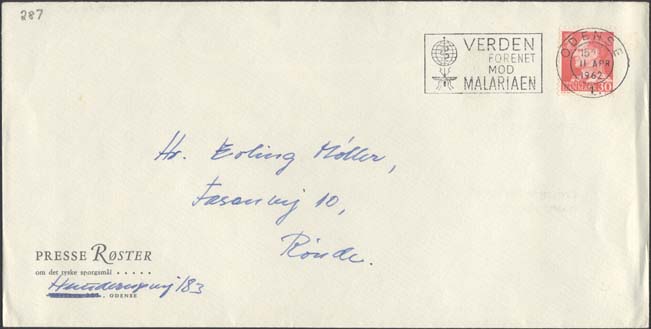 287
VERDEN
FORENET
MOD
MALARIAEN
ODENSE
15
11 APR
1962
30
Hr. Erling Møller,
Fasanvej 10,
Rønde.
PRESSE RØSTER
om det tyske spørgsmål . . . . .
Hunderupvej 183
, ODENSE